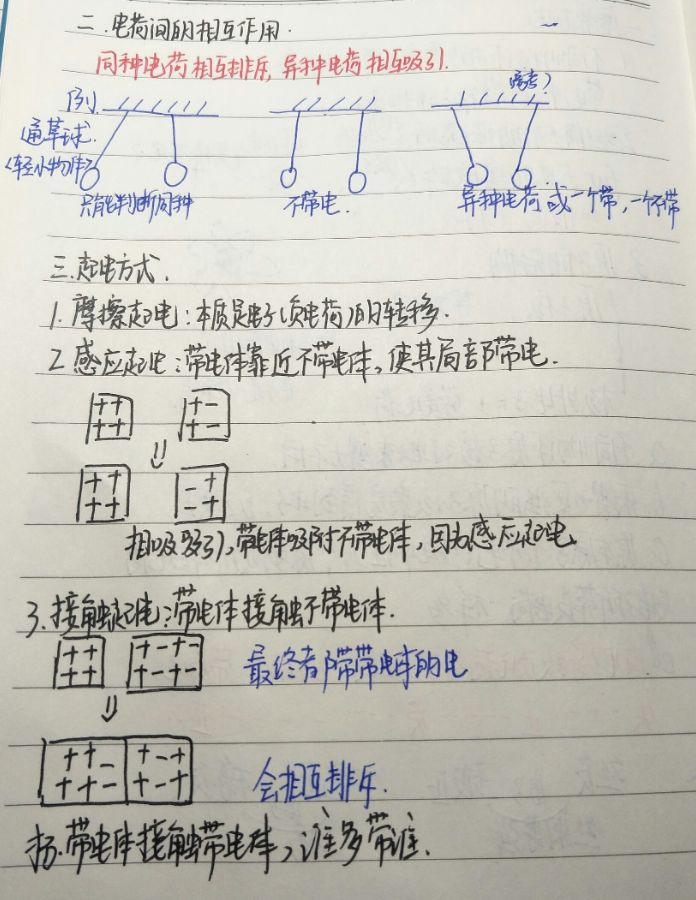 二.电荷间的相互作用.
同种电荷相互排斥,异种电荷相互吸引.
例.
(通草球)
<轻小物体>
常考?
只能判断同种
不带电.
异种电荷或一个带,一个不带
三.起电方式.
1.摩擦起电:本质是电子(负电荷)的转移.
2.感应起电:带电体靠近不带电体,使其局部带电.
++ +-
++ +-
⇓
++ -+
++ -+
相吸吸引,带电体吸附不带电体,因为感应起电
3.接触起电:带电体接触不带电体.
++ +-+-
++ +-+-
最终都带带电体的电
⇓
++- +-+
++- +-+
会相互排斥.
扬.带电体接触带电体,谁多带谁.